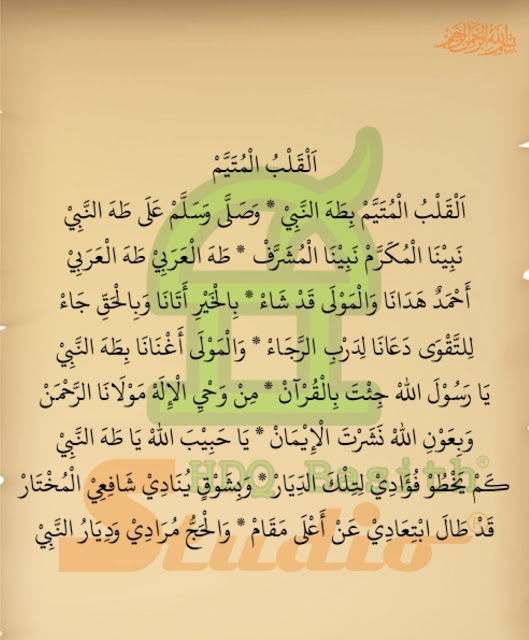 بسم الله الرحمن الرحيم
اَلْقَلْبُ الْمُتَيَّمْ
اَلْقَلْبُ الْمُتَيَّمْ بِطَهَ النَّبِيْ * وَصَلَّى وَسَلَّمْ عَلَى طَهَ النَّبِيْ
نَبِيْنَا الْمُكَرَّمْ نَبِيْنَا الْمُشَرَّفْ * طَهَ الْعَرَبِيْ طَهَ الْعَرَبِيْ
أَحْمَدٌ هَدَانَا وَالْمَوْلَى قَدْ شَاءْ * بِالْخَيْرِ أَتَانَا وَبِالْحَقِّ جَاءْ
لِلتَّقْوَى دَعَانَا لِدَرْبِ الرَّجَاءْ * وَالْمَوْلَى أَغْنَانَا بِطَهَ النَّبِيْ
يَا رَسُوْلَ اللهْ جِئْتَ بِالْقُرْآنْ * مِنْ وَحْيِ الْإِلَهْ مَوْلَانَا الرَّحْمَنْ
وَبِعَوْنِ اللهْ نَشَرْتَ الْإِيْمَانْ * يَا حَبِيْبَ اللهْ يَا طَهَ النَّبِيْ
كَم يَخْطُوْ فُؤَادِيْ لِتِلْكَ الدِّيَارْ * وَبِشَوْقٍ يُنَادِيْ شَافِعِيْ الْمُخْتَارْ
قَدْ طَالَ ابْتِعَادِيْ عَنْ أَعْلَى مَقَامْ * وَالْحَجُّ مُرَادِيْ وَدِيَارُ النَّبِيْ
HDQ Basith®
Studio®